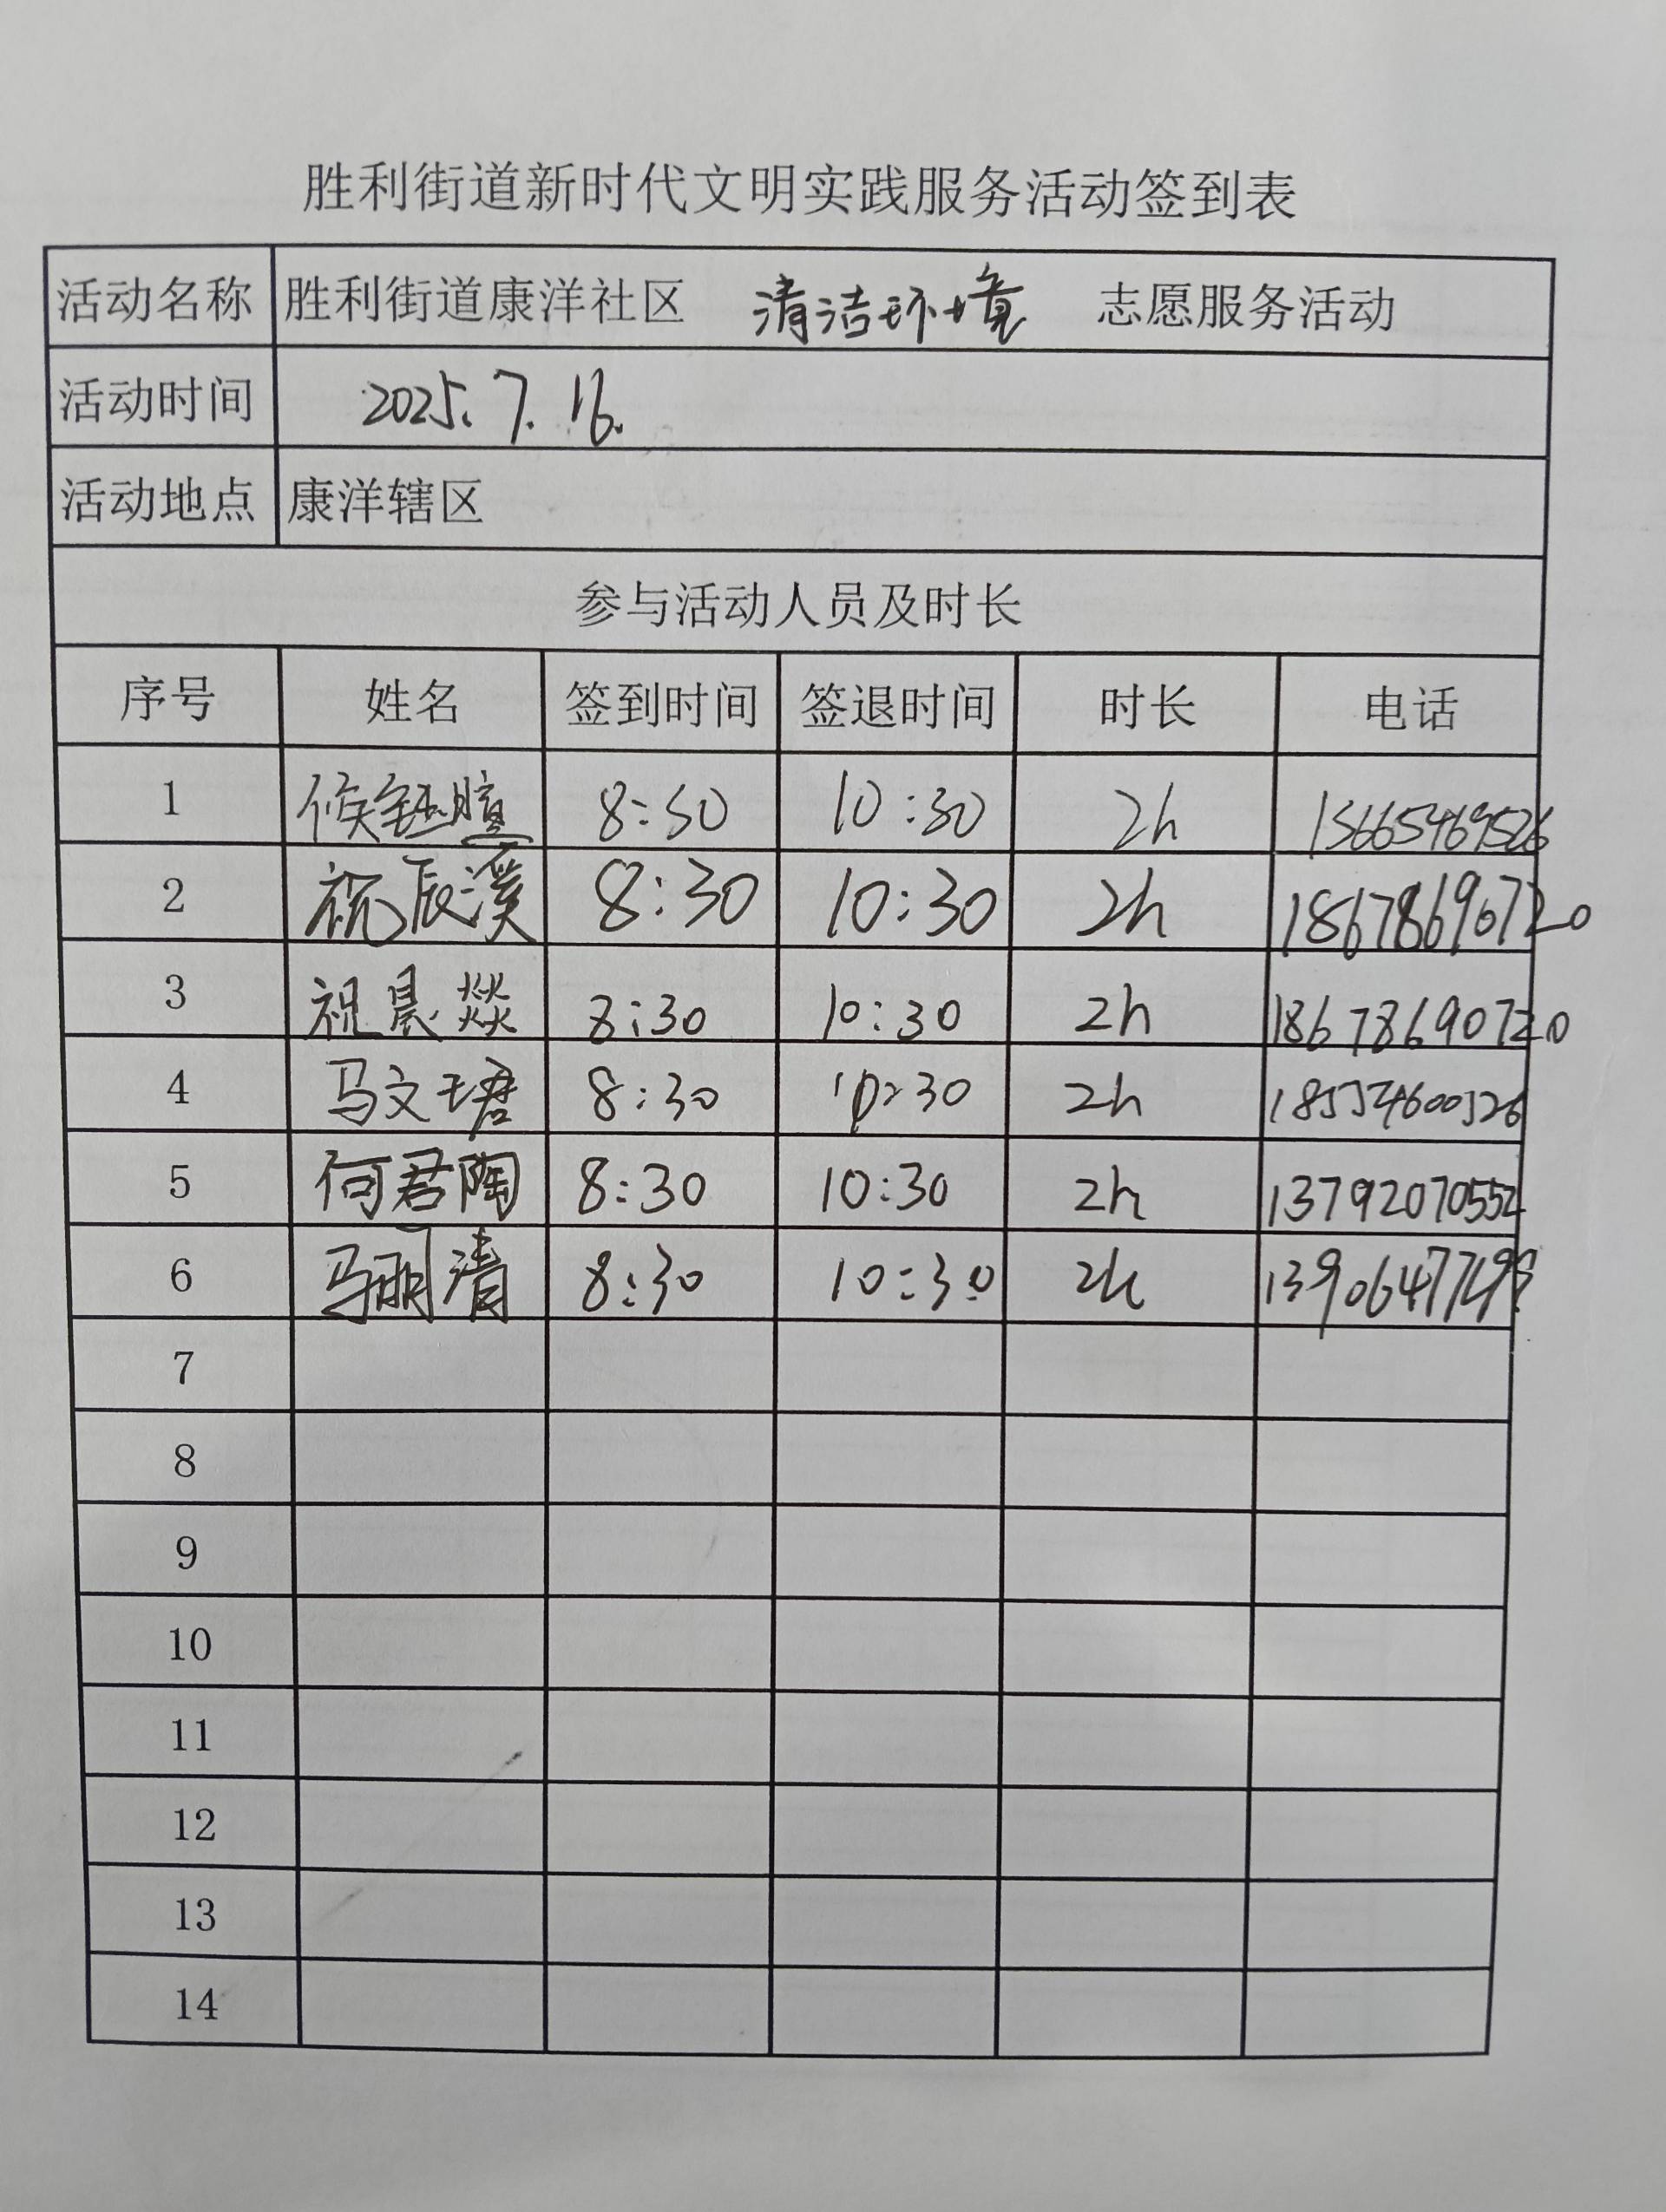 胜利街道新时代文明实践服务活动签到表
活动名称 胜利街道康洋社区 清洁环境 志愿服务活动
活动时间 2025.7.16.
活动地点 康洋辖区
参与活动人员及时长
序号 姓名 签到时间 签退时间 时长 电话
1 8:30 10:30 2h 15665469526
2 祝辰溪 8:30 10:30 2h 18678690720
3 祝晨燚 8:30 10:30 2h 18678690720
4 马文珺 8:30 10:30 2h
5 何君陶 8:30 10:30 2h 13792070552
6 8:30 10:30 2h
7
8
9
10
11
12
13
14